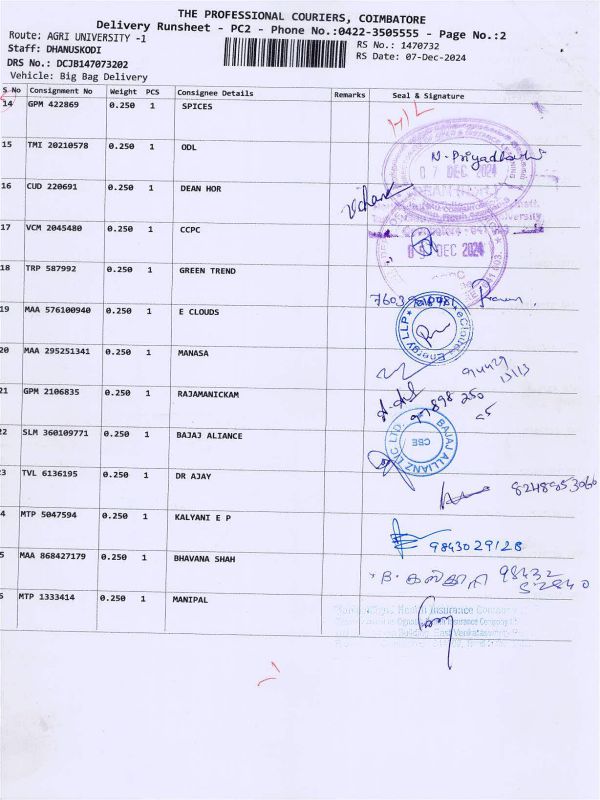 THE PROFESSIONAL COURIERS, COIMBATORE
Delivery Runsheet - PC2 - Phone No.:0422-3505555 - Page No.:2
Route: AGRI UNIVERSITY -1
RS No.: 1470732
Staff: DHANUSKODI
RS Date: 07-Dec-2024
DRS No.: DCJB147073202
Vehicle: Big Bag Delivery
S No Consignment No Weight PCS Consignee Details Remarks Seal & Signature
14 GPM 422869 0.250 1 SPICES
15 TMI 20210578 0.250 1 ODL
N. Priyadharshi
07 DEC 2024
16 CUD 220691 0.250 1 DEAN HOR
17 VCM 2045480 0.250 1 CCPC
DEC 2024
18 TRP 587992 0.250 1 GREEN TREND
19 MAA 576100940 0.250 1 E CLOUDS
eClouds Energy LLP
20 MAA 295251341 0.250 1 MANASA
21 GPM 2106835 0.250 1 RAJAMANICKAM
22 SLM 360109771 0.250 1 BAJAJ ALIANCE
BAJAJ ALLIANZ LIC LTD.
CBE
3 TVL 6136195 0.250 1 DR AJAY
8248953066
4 MTP 5047594 0.250 1 KALYANI E P
9843029128
5 MAA 868427179 0.250 1 BHAVANA SHAH
98432
52840
6 MTP 1333414 0.250 1 MANIPAL
Health Insurance Company